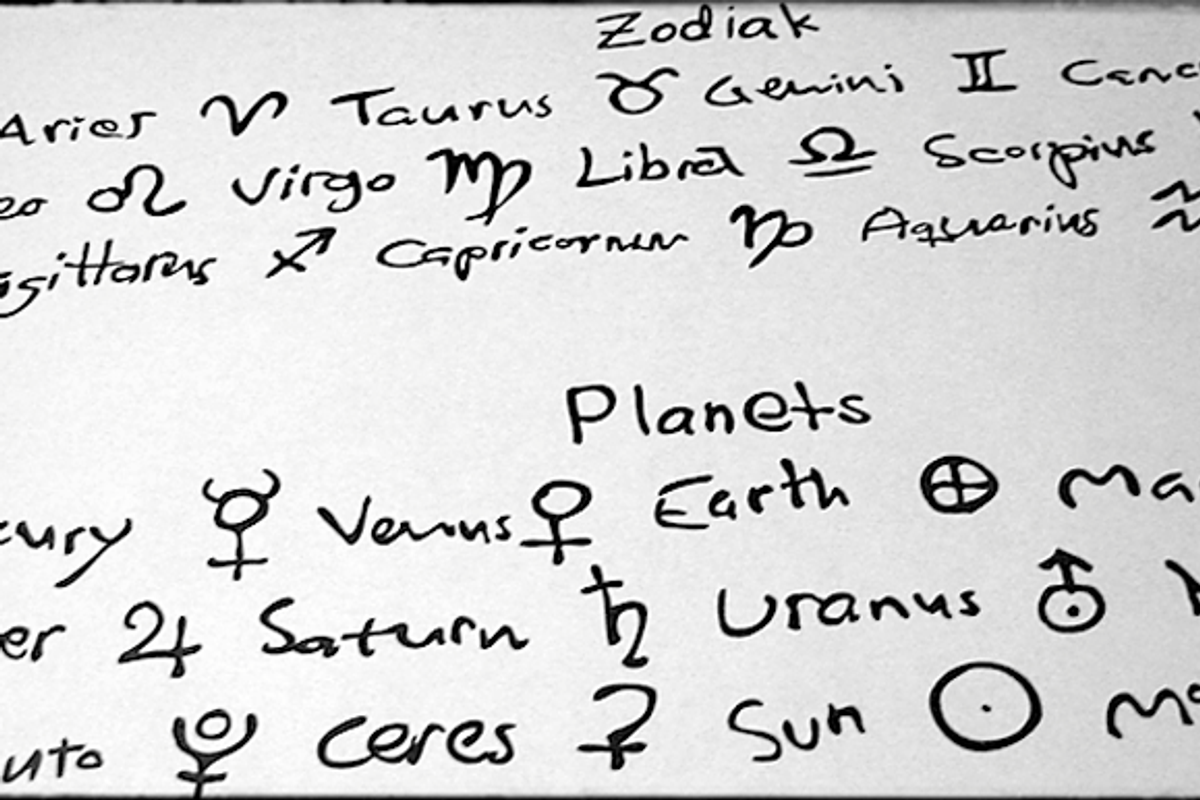 Zodiak
Aries ♈ Taurus ♉ Gemini ♊ Canc
eo ♌ Virgo ♍ Libra ♎ Scorpius
gittarus ♐ Capricornun ♑ Aquarius ♒
Planets
cury ☿ Venus ♀ Earth ⊕ Ma
er ♃ Saturn ♄ Uranus ⛢ N
uto ♇ Ceres ⚳ Sun ☉ Mo